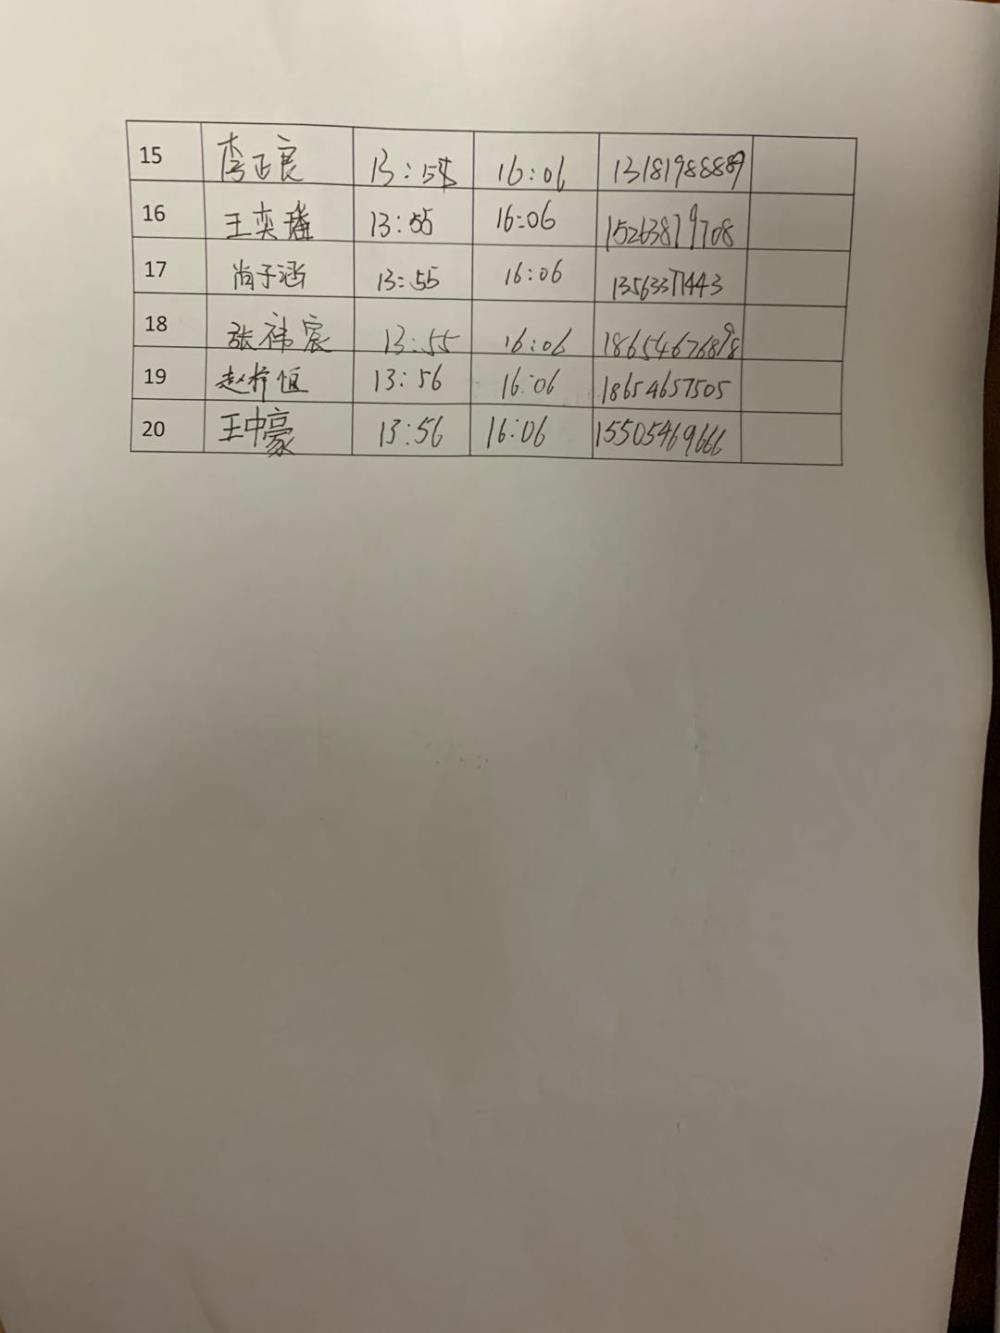 15 李正良 13:55 16:06 13181988889
16 王奕璠 13:55 16:06 15263819708
17 尚子涵 13:55 16:06 13563371443
18 张祎宸 13:55 16:06 18654676898
19 赵梓恒 13:56 16:06 18654657505
20 王中豪 13:56 16:06 15505469666